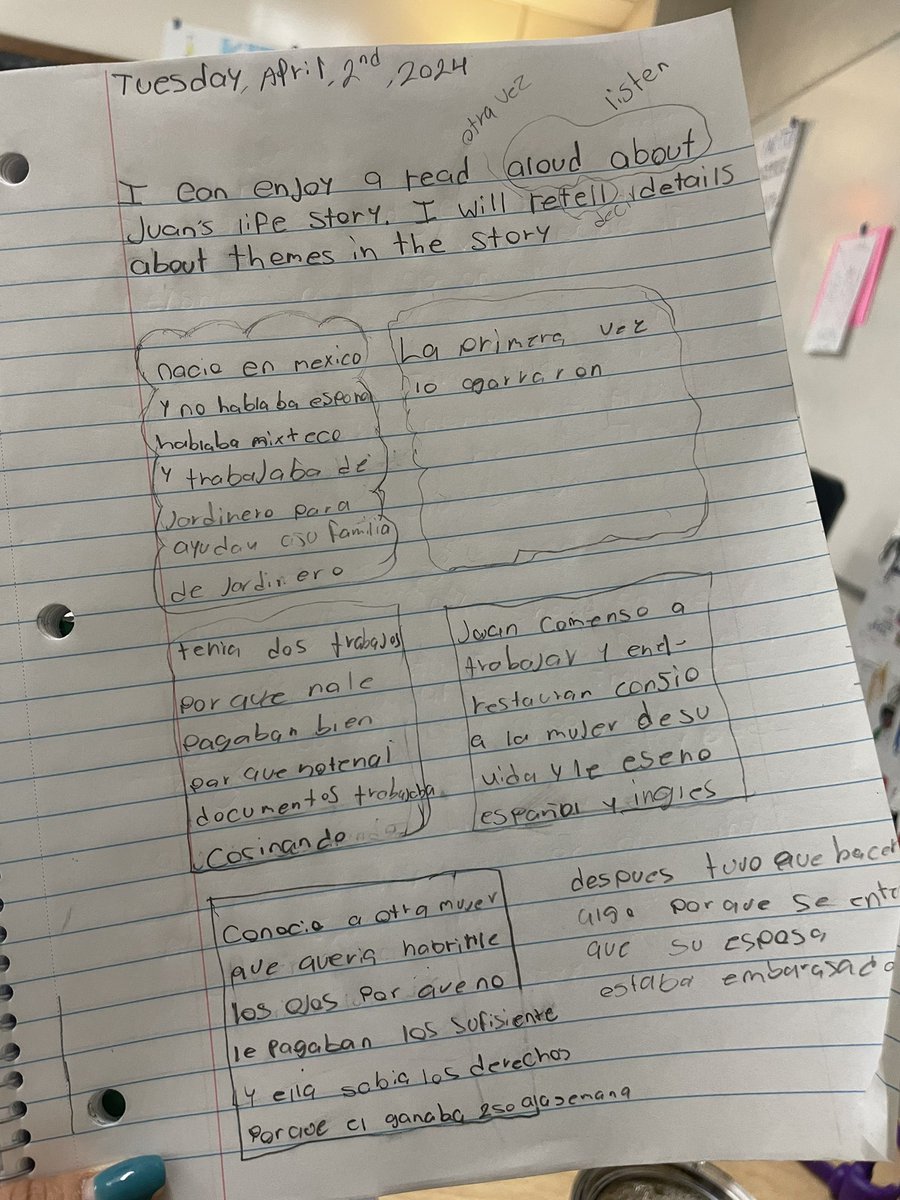 Tuesday, April, 2nd, 2024
otra vez
listen
I can enjoy a read aloud about
Juan's life story. I will retell details
deci
about themes in the story
nacio en mexico
y no hablaba espona
hablaba mixteco
y trabajaba de
Jordinero para
ayudau asu familia
de Jordinero
La primera vez
lo agarraron
tenia dos trabajos
por que nale
pagaban bien
por que notenai
documentos trabajaba
Cosinando
Juan comenso a
trabajar y enel-
restauran consio
a la mujer desu
vida y le eseno
español y ingles
Conocio a otra mujer
que queria habrirle
los ojos por que no
le pagaban los sufisiente
y ella sabia los derechos
porque el ganaba 250 alasemana
despues tuvo que hacer
algo por que se ente
que su esposa
estaba embarasada